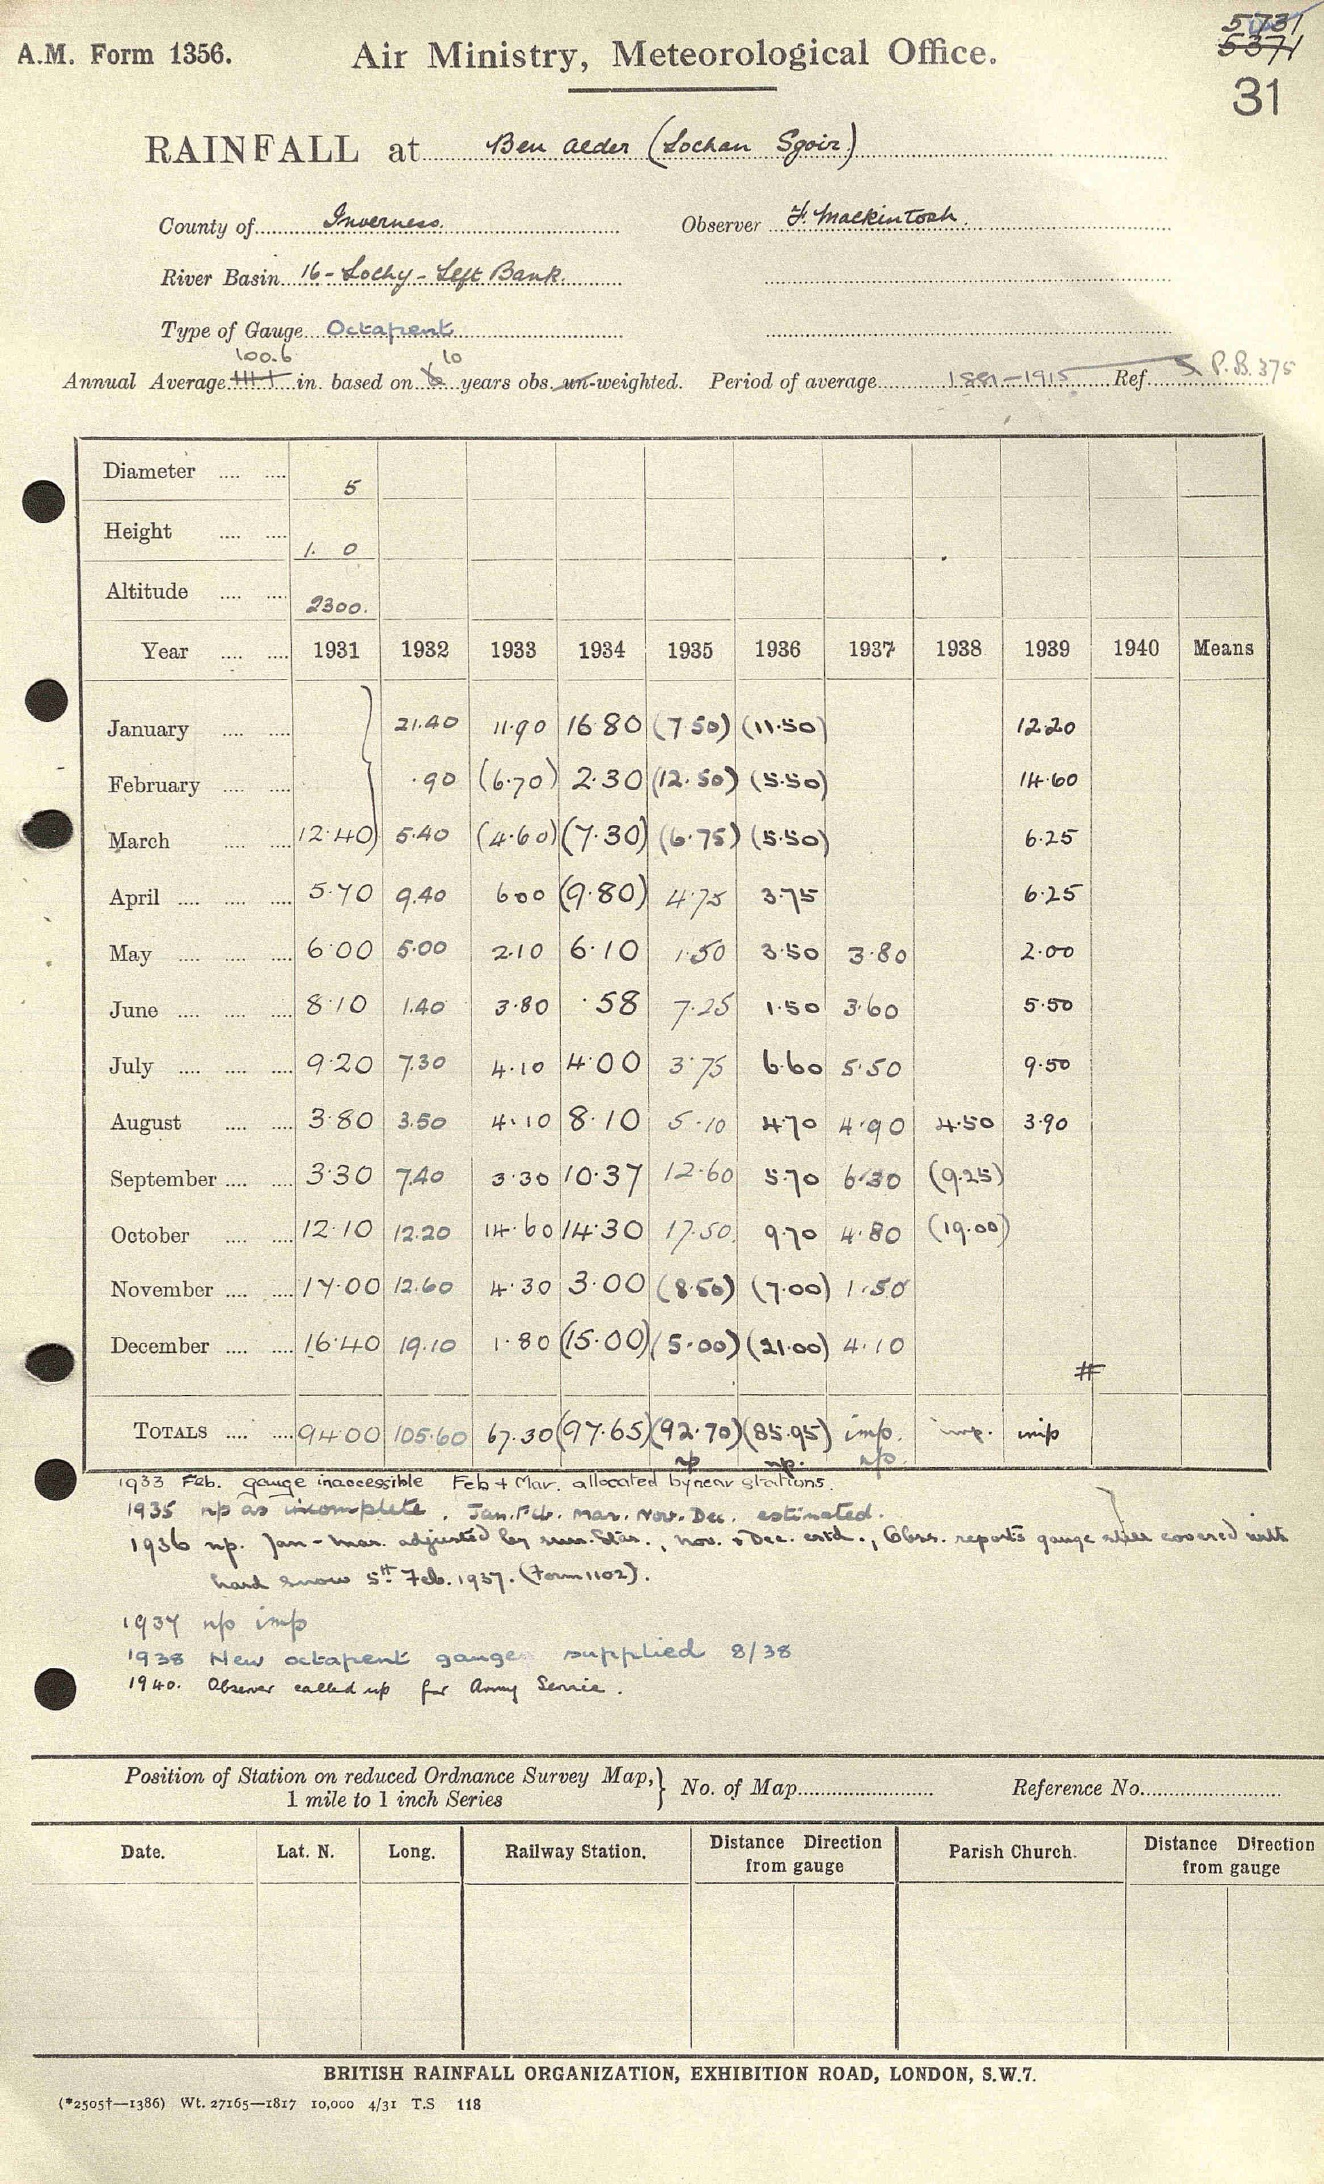 A.M. Form 1356.
Air Ministry, Meteorological Office.
5731
5371
31
RAINFALL at Ben Alder (Lochan Sgoir)
County of Inverness. Observer F. Mackintosh.
River Basin 16 - Lochy - Left Bank.
Type of Gauge Octapent
100.6 10
Annual Average 111.1 in. based on 6 years obs. un-weighted. Period of average 1881-1915 Ref P.B. 375
Diameter .... .... 5
Height .... .... 1. 0
Altitude .... .... 2300.
Year .... .... 1931 1932 1933 1934 1935 1936 1937 1938 1939 1940 Means
January .... .... 21.40 11.90 16.80 (7.50) (11.50) 12.20
February .... .... .90 (6.70) 2.30 (12.50) (5.50) 14.60
March .... .... 12.40 5.40 (4.60) (7.30) (6.75) (5.50) 6.25
April .... .... .... 5.70 9.40 6 00 (9.80) 4.75 3.75 6.25
May .... .... .... 6.00 5.00 2.10 6.10 1.50 3.50 3.80 2.00
June .... .... .... 8.10 1.40 3.80 .58 7.25 1.50 3.60 5.50
July .... .... .... 9.20 7.30 4.10 4.00 3.75 6.60 5.50 9.50
August .... .... 3.80 3.50 4.10 8.10 5.10 4.70 4.90 4.50 3.90
September .... .... 3.30 7.40 3.30 10.37 12.60 5.70 6.30 (9.25)
October .... .... 12.10 12.20 14.60 14.30 17.50 9.70 4.80 (19.00)
November .... .... 17.00 12.60 4.30 3.00 (8.50) (7.00) 1.50
December .... .... 16.40 19.10 1.80 (15.00) (5.00) (21.00) 4.10
#
TOTALS .... .... 94.00 105.60 67.30 (97.65) (92.70) (85.95) imp. imp. imp
np np. np.
1933 Feb. gauge inaccessible Feb + Mar. allocated by near stations.
1935 np as incomplete. Jan. Feb. Mar. Nov. Dec. estimated.
1936 np. Jan - Mar. adjusted by surr. Stas., Nov. & Dec. estd., Obsr. reports gauge still covered with
hard snow 5th Feb. 1937. (Form 1102).
1937 np imp
1938 New octapent gauge supplied 8/38
1940. Observer called up for Army Service.
Position of Station on reduced Ordnance Survey Map, 1 mile to 1 inch Series } No. of Map Reference No.
Date. Lat. N. Long. Railway Station. Distance Direction from gauge Parish Church. Distance Direction from gauge
BRITISH RAINFALL ORGANIZATION, EXHIBITION ROAD, LONDON, S.W.7.
(*2505†—1386) Wt. 27165—1817 10,000 4/31 T.S 118